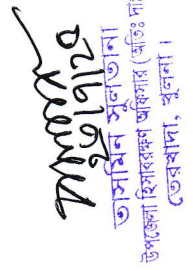 তাসমিন সুলতানা
উপজেলা হিসাবরক্ষণ অফিসার (অতিঃ দাঃ
তেরখাদা, খুলনা।